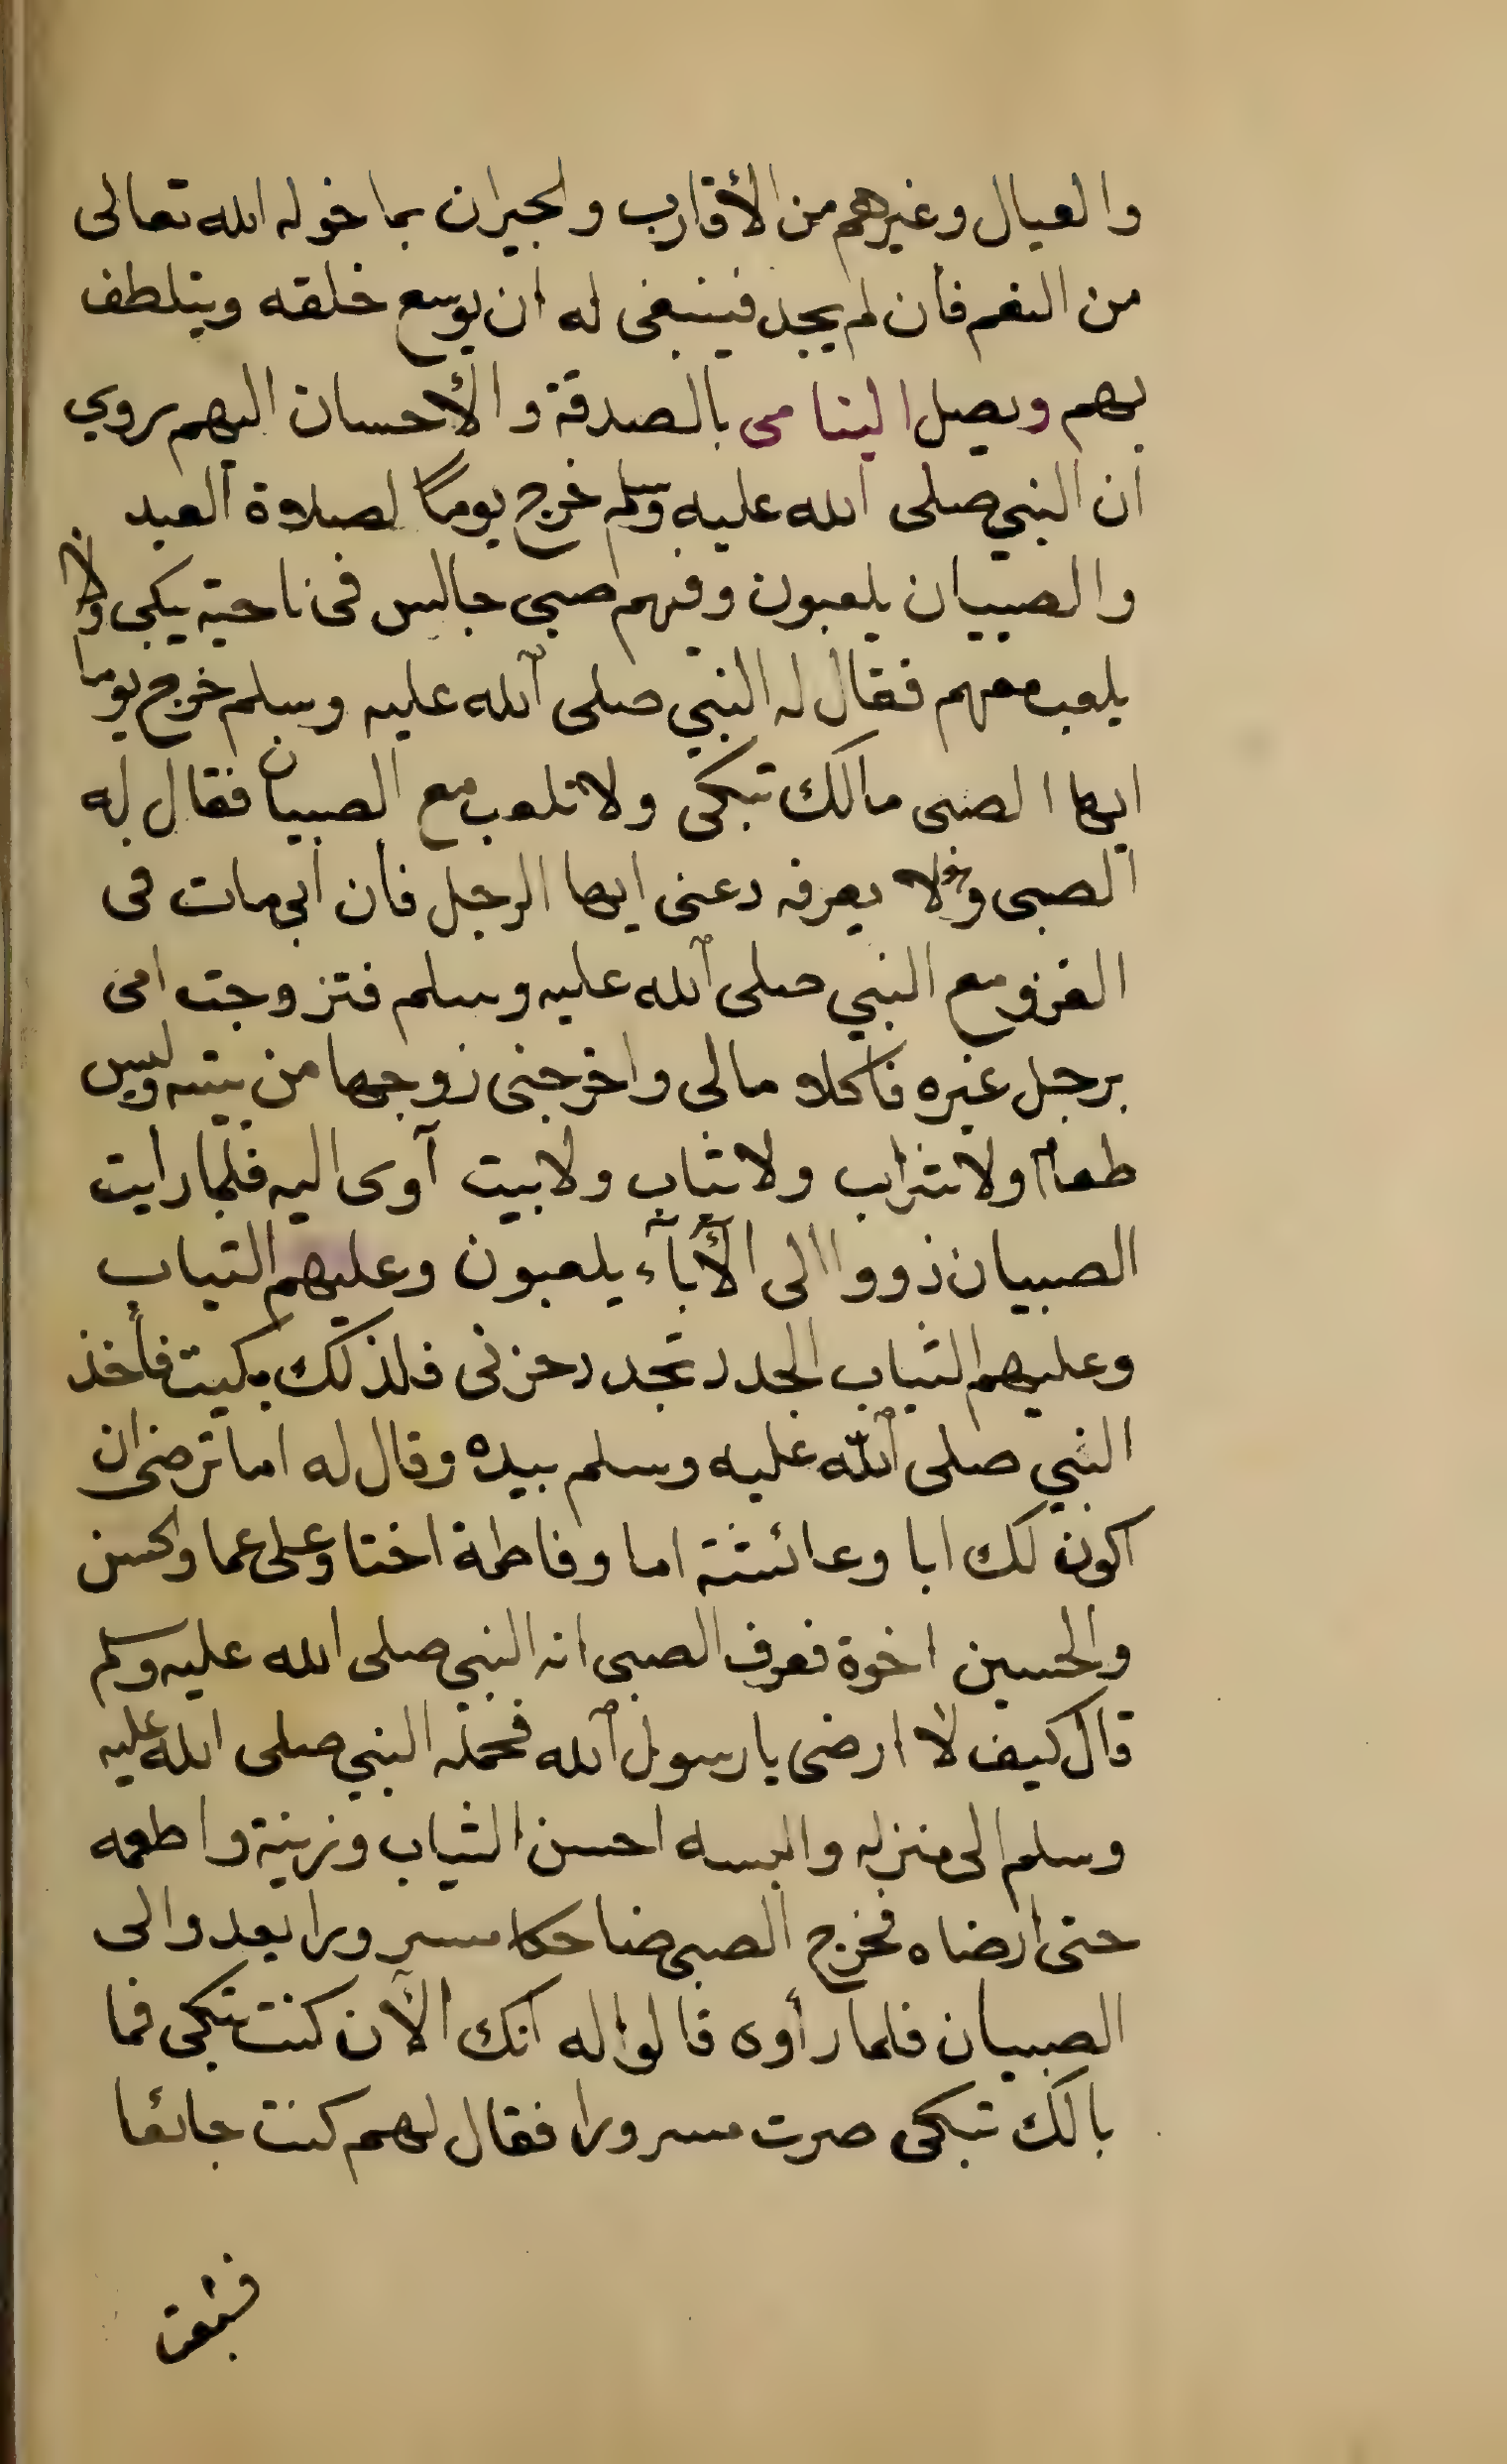 والعيال وغيرهم من الأقارب والجيران بما خوله الله تعالى
من النعم فان لم يجد فينبغى له ان يوسع خلقه ويتلطف
بهم ويصل اليتامى بالصدقة والأحسان اليهم روي
ان النبي صلى الله عليه وسلم خرج يوماً لصلاة العيد
والصبيان يلعبون وفيهم صبى جالس فى ناحية يبكى ولا
يلعب معهم فقال له النبي صلى الله عليه وسلم خرج يوما
ايها الصبى مالك تبكى ولا تلعب مع الصبيان فقال له
الصبى ولا يعرفه دعنى ايها الرجل فان ابى مات فى
الغزو مع النبي صلى الله عليه وسلم فتزوجت امى
برجل غيره فاكلا مالى واخرجنى زوجها من بيته وليس
طعام ولا شراب ولا ثياب ولا بيت آوى اليه فلما رايت
الصبيان ذووا الى الأبآء يلعبون وعليهم الثياب
وعليهم الثياب الجدد تجدد حزنى فلذلك بكيت فأخذ
النبي صلى الله عليه وسلم بيده وقال له اما ترضى ان
اكون لك ابا وعائشة اما وفاطمة اختا وعلى عما والحسن
والحسين اخوة فعرف الصبى انه النبي صلى الله عليه وسلم
قال كيف لا ارضى يا رسول الله فحمله النبي صلى الله عليه
وسلم الى منزله والبسه احسن الثياب وزينة واطعمه
حتى ارضاه فخرج الصبى ضاحكا مسرورا يعدوالى
الصبيان فلما رأوه قالوا له انك الآن كنت تبكى فما
بالك تبكى صرت مسرورا فقال لهم كنت جائعا
فشبعت